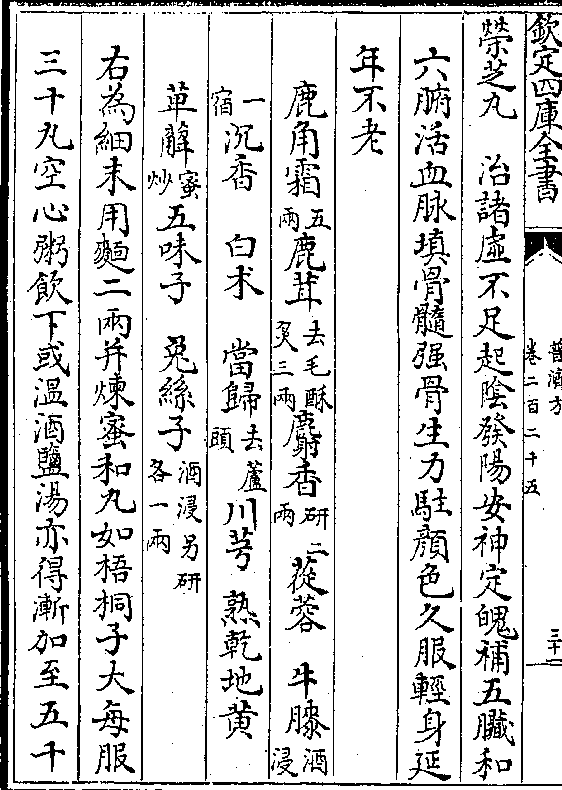 欽定四庫全書
普濟方
卷二百二十五
三十一
榮芝丸 治諸虛不足起陰發陽安神定魄補五臟和
六腑活血脉填骨髓强骨生力駐顔色久服輕身延
年不老
鹿角霜五兩鹿茸去毛酥炙三兩麝香研二兩 蓯蓉 牛膝酒浸
一宿沉香 白术 當歸去蘆頭川芎 熟乾地黄
萆薢蜜炒五味子 兎絲子酒浸另研各一兩
右為細末用麵二兩并煉蜜和丸如梧桐子大每服
三十丸空心粥飲下或温酒鹽湯亦得漸加至五十